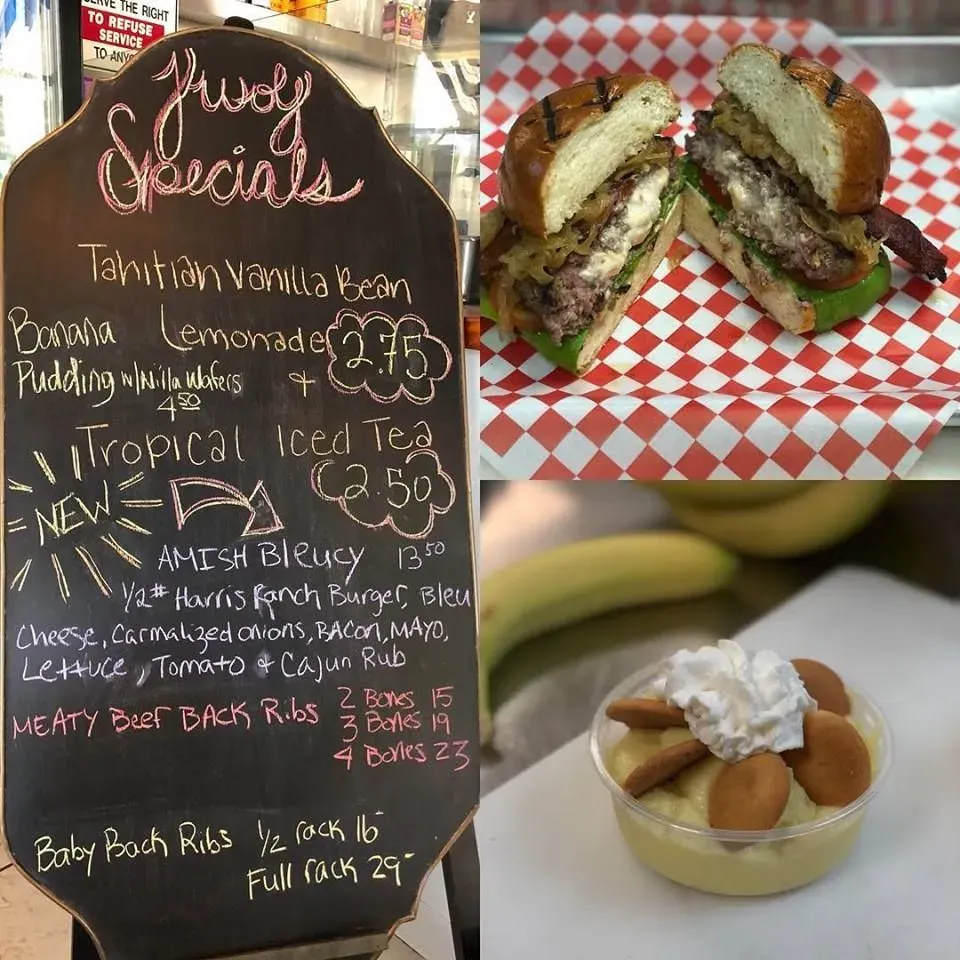 SERVE THE RIGHT
TO REFUSE
SERVICE
TO
Specials
Tahitian Vanilla Bean
Lemonade 2.75
Banana
Pudding w/Nilla Wafers &
4.50
Tropical Iced Tea
2.50
NEW
AMISH Bleucy 13.50
1/2# Harris Ranch Burger, Bleu
Cheese, Carmalized onions, BACON, MAYO,
Lettuce, Tomato & Cajun Rub
MEATY Beef BACK Ribs 2 Bones 15
3 Bones 19
4 Bones 23
Baby Back Ribs 1/2 rack 16-
Full rack 29-